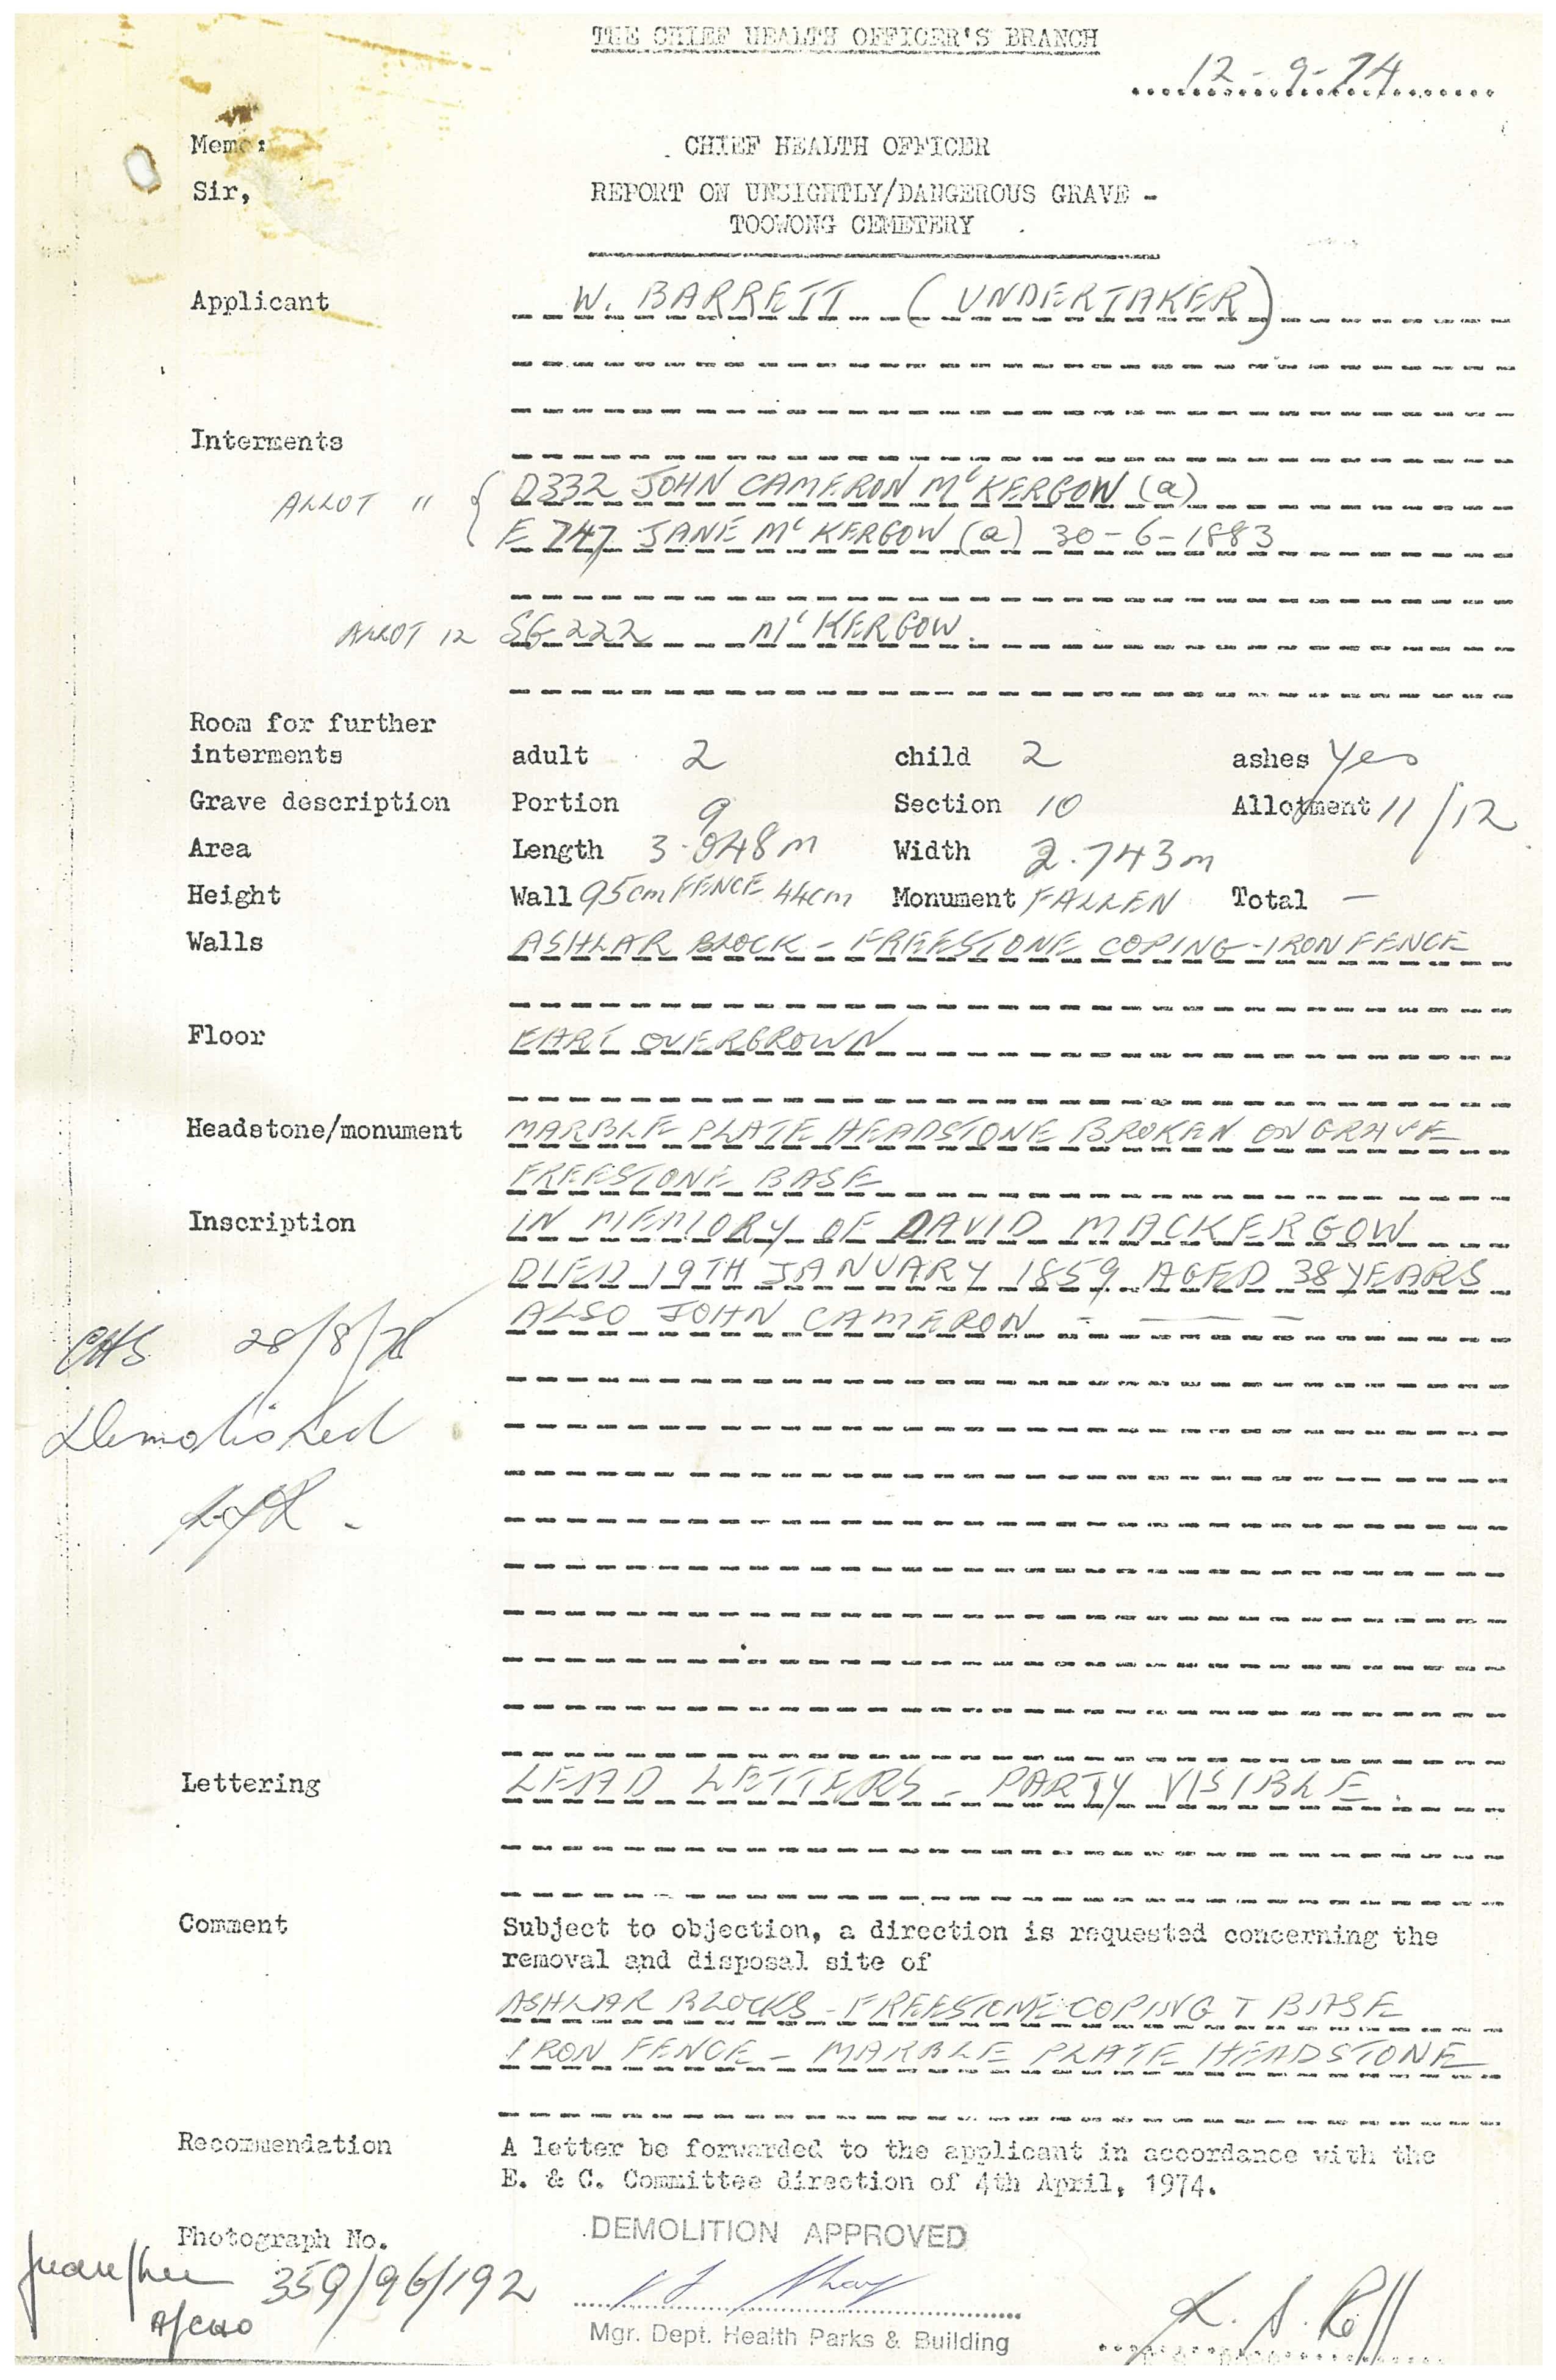 THE CHIEF HEALTH OFFICER'S BRANCH
12-9-74
Memo:
CHIEF HEALTH OFFICER
Sir,
REPORT ON UNSIGHTLY/DANGEROUS GRAVE -
TOOWONG CEMETERY
Applicant W. BARRETT (UNDERTAKER)
Interments
ALLOT 11 { D332 JOHN CAMERON McKERGOW (a)
E 747 JANE McKERGOW (a) 30-6-1883
ALLOT 12 SG 222 McKERGOW.
Room for further
interments adult 2 child 2 ashes Yes
Grave description Portion 9 Section 10 Allotment 11/12
Area Length 3.048m Width 2.743m
Height Wall 95cm FENCE 44cm Monument FALLEN Total —
Walls ASHLAR BLOCK - FREESTONE COPING - IRON FENCE
Floor EART OVERGROWN
Headstone/monument MARBLE PLATE HEADSTONE BROKEN ON GRAVE
FREESTONE BASE
Inscription IN MEMORY OF DAVID MACKERGOW
DIED 19TH JANUARY 1859 AGED 38 YEARS
ALSO JOHN CAMERON - — — —
28/8/
Demolished
Lettering LEAD LETTERS - PARTY VISIBLE.
Comment Subject to objection, a direction is requested concerning the
removal and disposal site of
ASHLAR BLOCKS - FREESTONE COPING + BASE
IRON FENCE - MARBLE PLATE HEADSTONE
Recommendation A letter be forwarded to the applicant in accordance with the
E. & C. Committee direction of 4th April, 1974.
Photograph No. DEMOLITION APPROVED
359/96/192
A/CHO
Mgr. Dept. Health Parks & Building